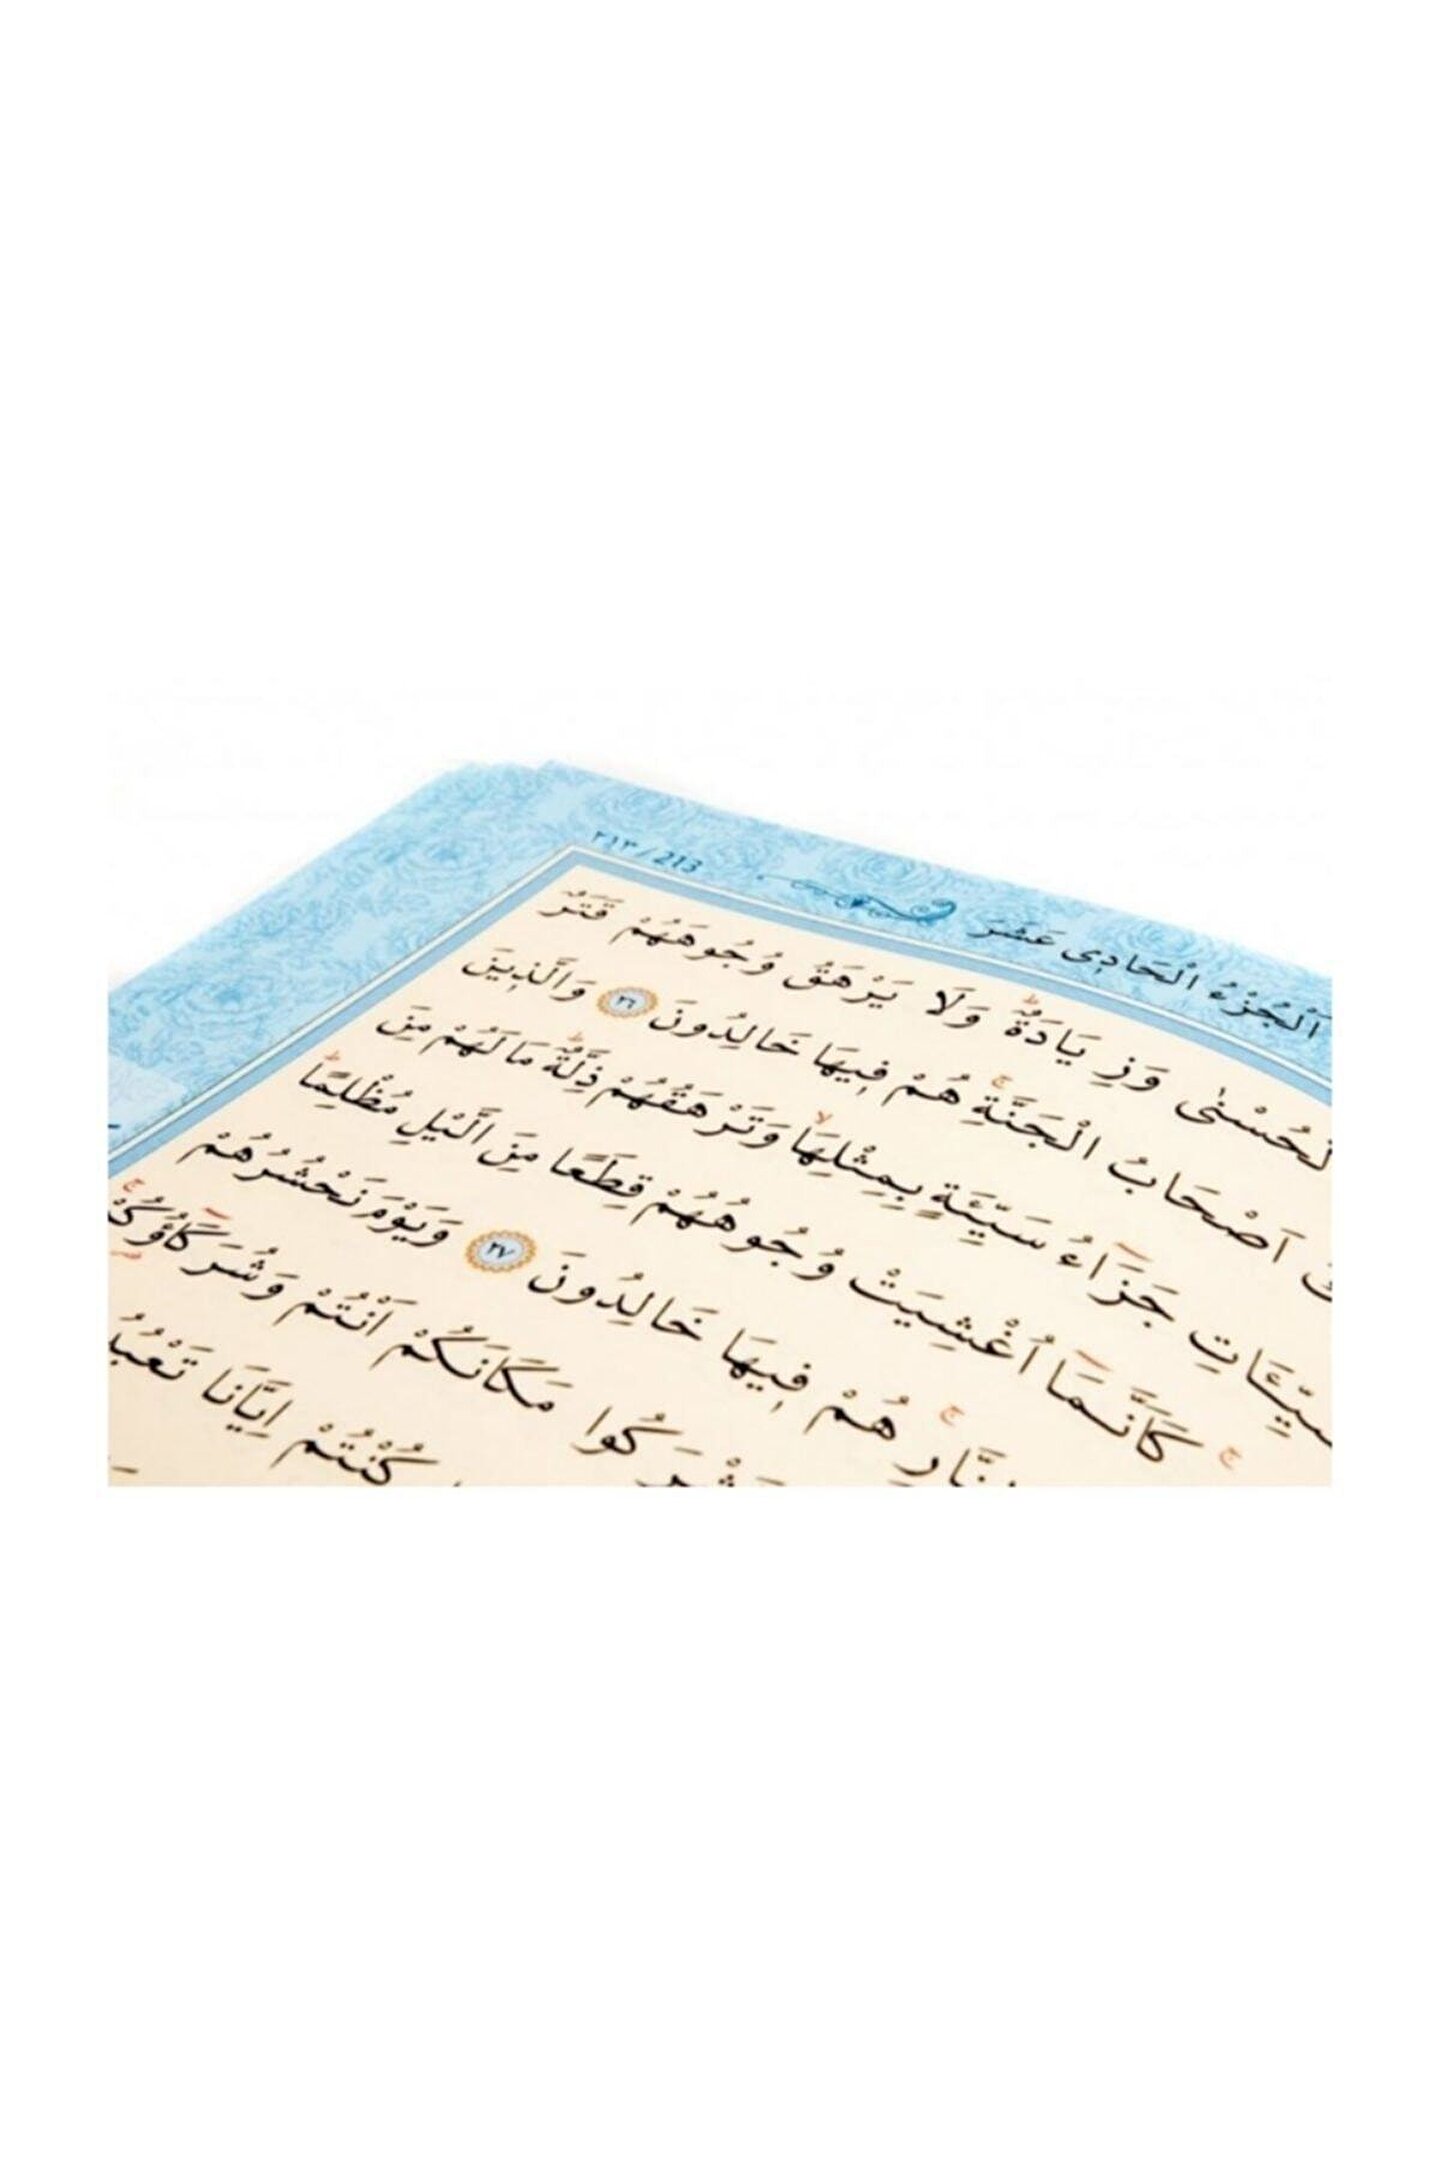 ٢١٣ / 213
اَلْجُزْءُ الْحَادِى عَشَرَ
لْحُسْنٰى وَزِيَادَةٌۜ وَلَا يَرْهَقُ وُجُوهَهُمْ قَتَرٌ
اَصْحَابُ الْجَنَّةِۚ هُمْ فِيهَا خَالِدُونَ ٢٦ وَالَّذِينَ
سَيِّـَٔاتِ جَزَٓاءُ سَيِّئَةٍ بِمِثْلِهَاۙ وَتَرْهَقُهُمْ ذِلَّةٌۜ مَا لَهُمْ مِنَ
كَاَنَّمَٓا اُغْشِيَتْ وُجُوهُهُمْ قِطَعًا مِنَ الَّيْلِ مُظْلِمًاۜ
النَّارِۚ هُمْ فِيهَا خَالِدُونَ ٢٧ وَيَوْمَ نَحْشُرُهُمْ
مَكَانَكُمْ اَنْتُمْ وَشُرَكَٓاؤُ۬كُمْۚ
كُنْتُمْ اِيَّانَا تَعْبُدُ